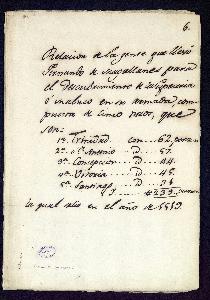 6.
Relacion de la gente que llevó
Fernando de Magallanes para
el Descubrimiento de la Especieria
ó Maluco en su armada com-
puesta de cinco naos, que
son:
1ª Trinidad con 62 personas
2ª S. Antonio d 57.
3ª Concepcion d 44.
4ª Vitoria d 45.
5ª Santiago d 31
239 personas
la qual salio en el año de 1519